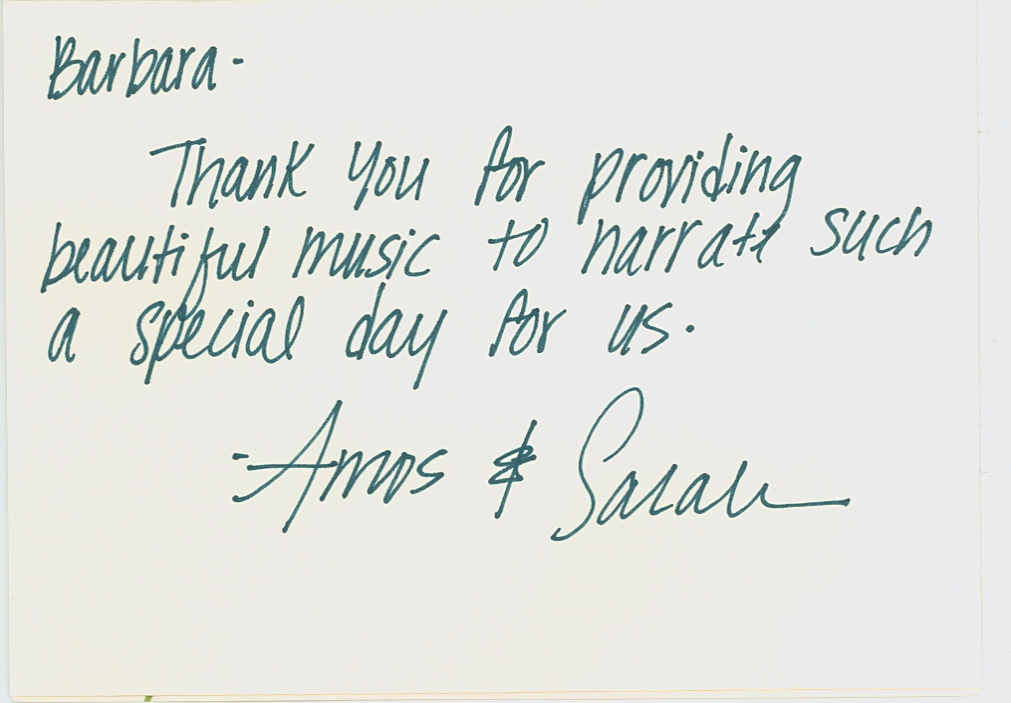 Barbara -
Thank you for providing
beautiful music to narrate such
a special day for us.
- Amos & Sarah